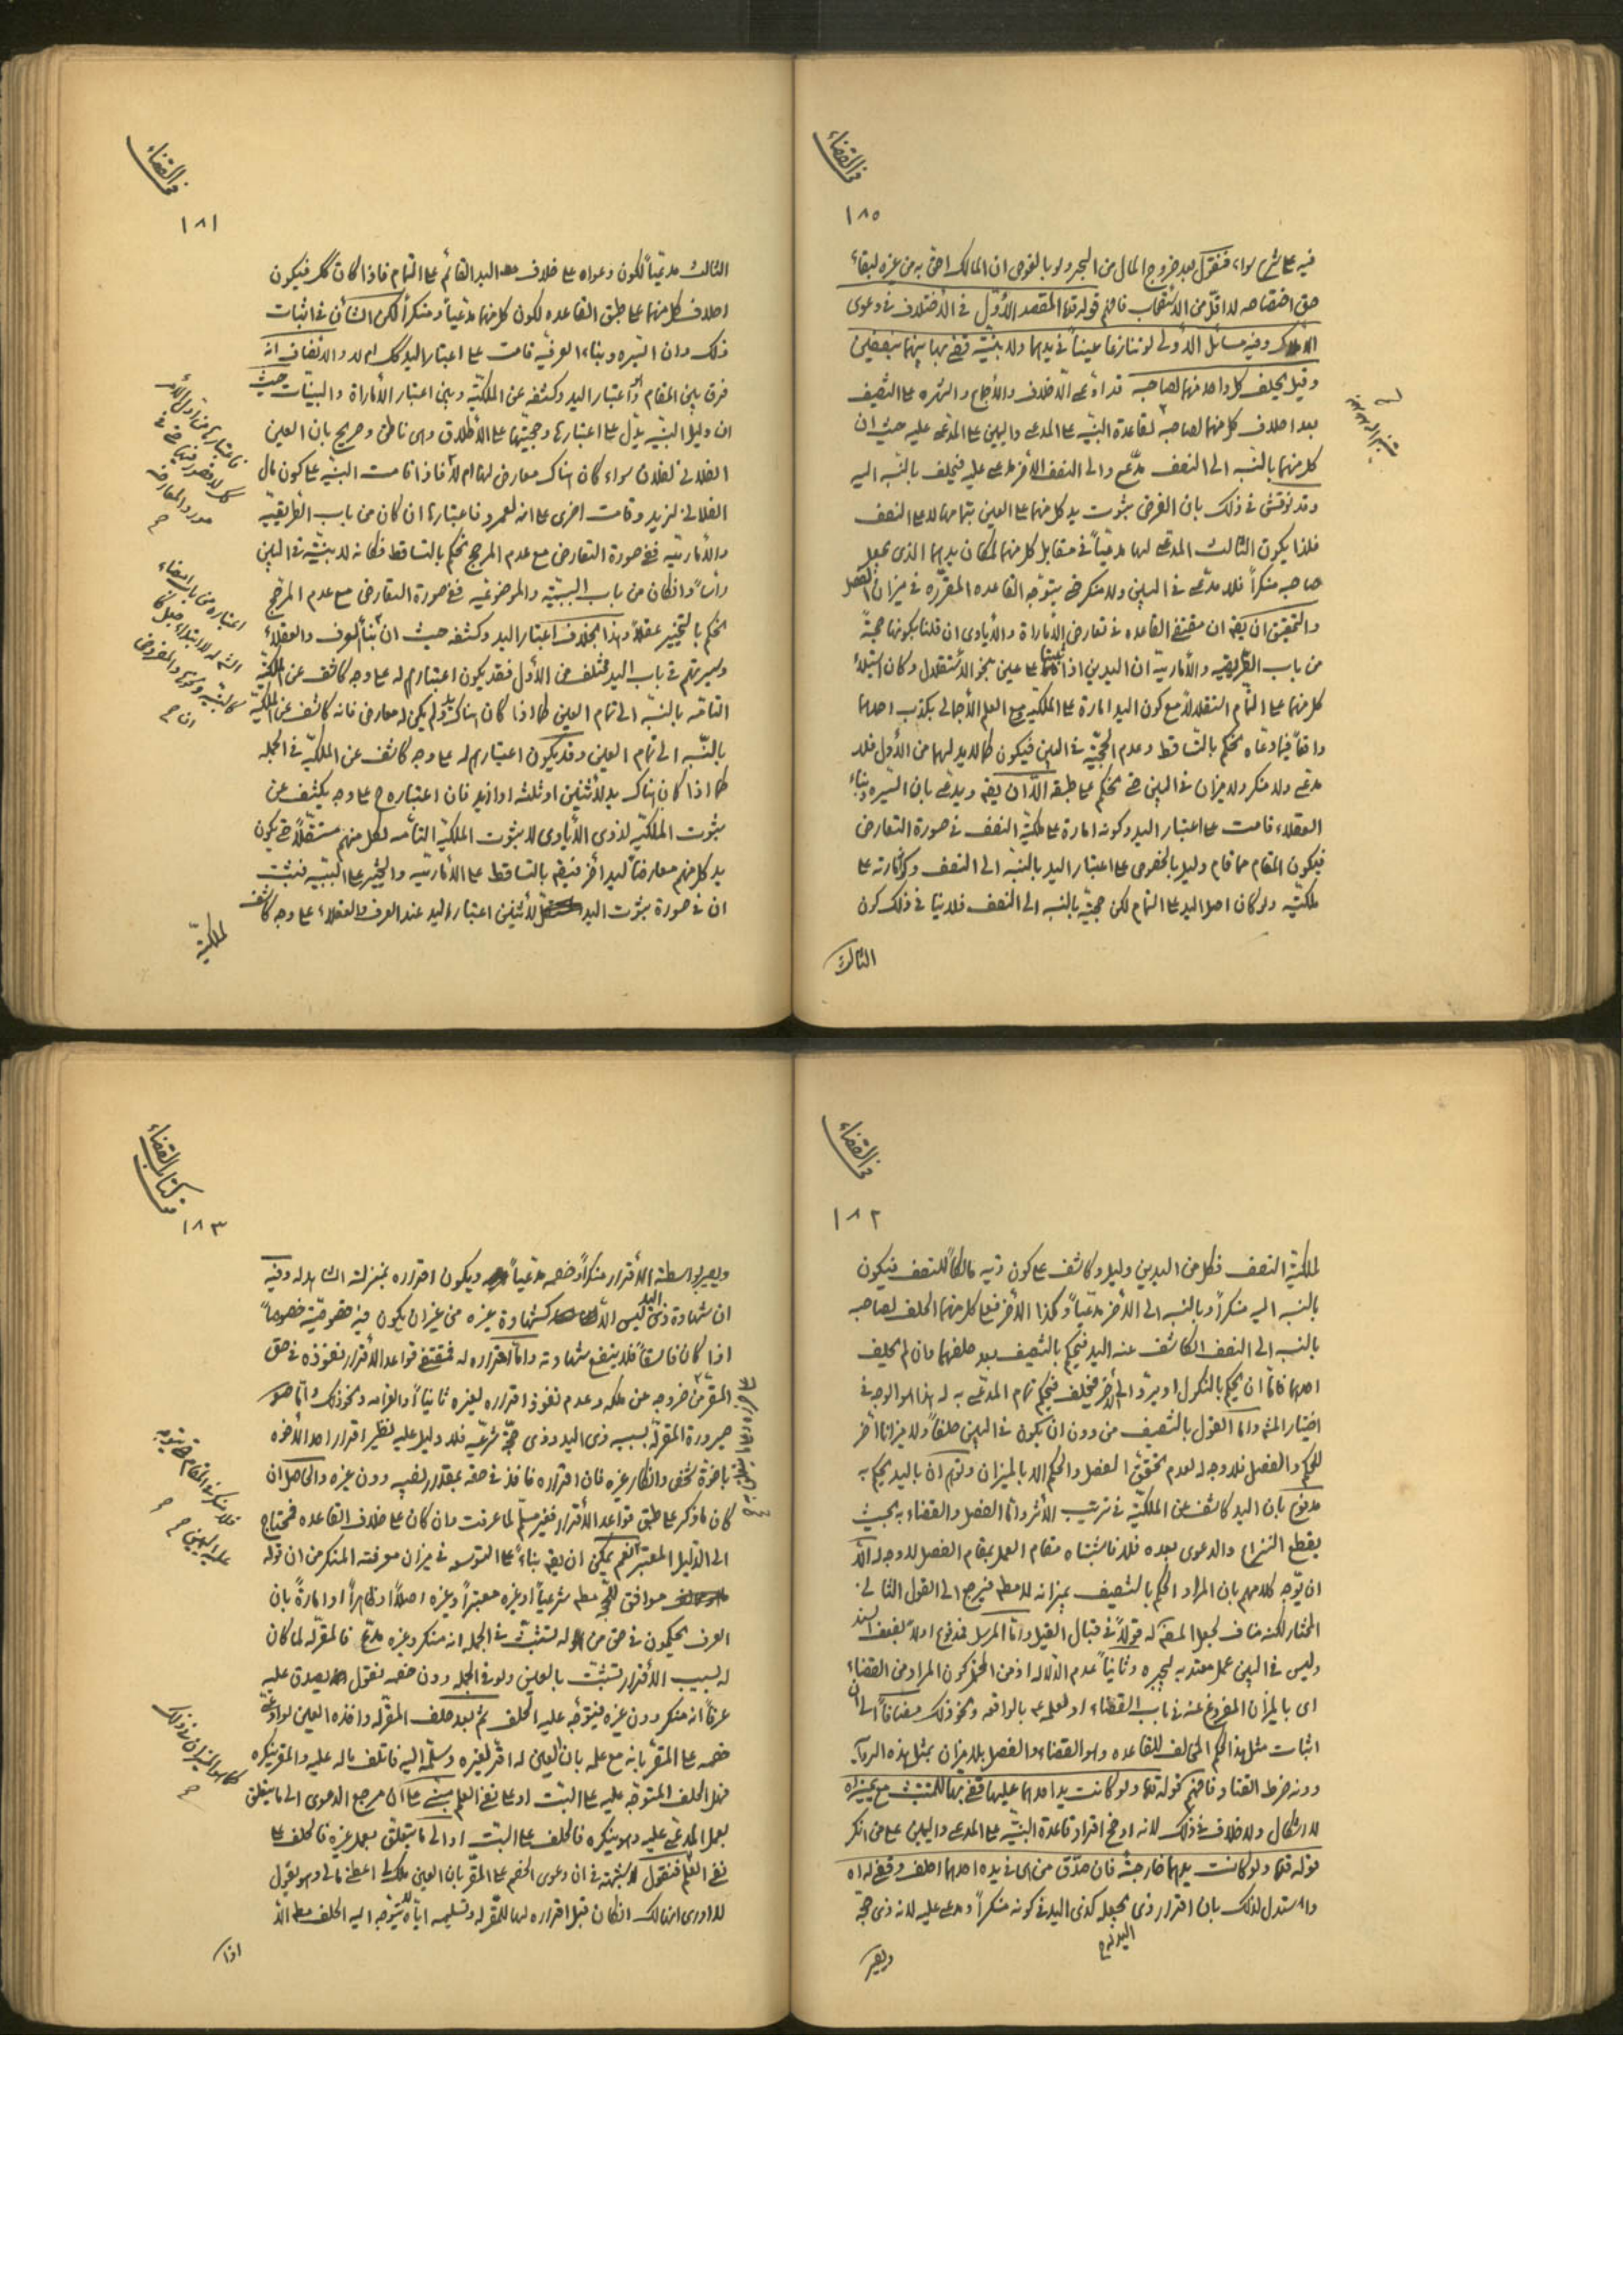 في القضاء
١٨٥
فيه على شرع سواء فنقول بعد خروج المال من البحر ولو بالغوص ان المالك احق به من غيره لبقاء
حق اختصاصه لا اقل من الاستصحاب فافهم قوله قده المقصد الأول في الأختلاف في دعوى
الاملاك وفيه مسائل الأولى لو تنازعا عيناً في يدهما ولا بينة قضى بها بينهما نصفين
وقيل يحلف كل واحد منهما لصاحبه قد ادعى الاخلاف والأجماع والشهره على التنصيف
بعد احلاف كل منهما لصاحبه لقاعدة البينه على المدعى واليمين على المدعى عليه حيث ان
كل منهما بالنسبه الى النصف مدّع والى النصف الآخر مدعى عليه فيحلف بالنسبه اليه
وقد نوقش في ذلك بان الفرض ثبوت يد كل منهما على العين بتمامها لا على النصف
فلذا يكون الثالث المدعى لها مدعياً في مقابل كل منهما لمكان يدهما الذى يجعل
صاحبه منكراً فلا مدعى في البين ولا منكر حتى يتوجه القاعده المقرره في ميزان الفصل
والتحقيق ان يقه ان مقتضى القاعده في تعارض الأماراة والأيادى ان قلنا بكونها حجة
من باب الطريقيه والأماريه ان اليدين اذا على عين بنحو الأستقلال وكان استيلاء
كل منهما على التمام استقلالاً مع كون اليد امارة على الملكيه مع العلم الأجمالى بكذب احدهما
واقعاً فيما ادعاه يحكم بالتساقط وعدم الحجيّة في البين فيكون كما لا يد لهما من الأول فلا
مدعى ولا منكر ولا ميزان في البين حتى يحكم على طبقه الا ان يقه ويدعى بان السيره وبناء
العقلاء قامت على اعتبار اليد وكونه امارة على ملكيّة النصف في صورة التعارض
فيكون المقام مما قام دليل بالخصوص على اعتبار اليد بالنسبه الى النصف وكونه امارته على
ملكيته ولو كان اصل اليد على التمام لكن حجيته بالنسبه الى النصف فلا ينافى ذلك كون
الثالث
في القضاء
١٨١
الثالث مدعياً لكون دعواه على خلاف اليد القائم على التمام فاذا كان كك فيكون
احلاف كل منهما على طبق القاعده لكون كل منهما مدعياً ومنكراً لكن الشأن في اثبات
ذلك وان السيره وبناء العرفيه قامت على اعتبار اليد كك ام لا والانصاف انه
فرق بين المقام اى اعتبار اليد وكشفه عن الملكيّة وبين اعتبار الأماراة والبينات حيث
ان دليل البينه يدل على اعتبارها وحجيتها على الأطلاق وهى ناطق وصريح بان العين
الفلانى لفلان سواء كان هناك معارض لها ام لا فاذا قامت البينه على كون مال
الفلانى لزيد وقامت اخرى على انه لعمرو فاعتبارها ان كان من باب الطريقيه
والأماريه ففى صورة التعارض مع عدم المرجح يحكم بالتساقط فكانه لا بينة في البين
رأساً وان كان من باب السببيه والموضوعيه ففى صورة التعارض مع عدم المرجح
يحكم بالتخيير عقلاً وهذا بخلاف اعتبار اليد وكشفه حيث ان بناء العرف والعقلاء
وسيرتهم في باب اليد مختلف من الأول فقد يكون اعتبارهم له على وجه كاشف عن الملكيّة
التامه بالنسبه الى تمام العين كما اذا كان هناك يد ولم يكن له معارض فانه كاشف عن الملكيّة
بالنسبه الى تمام العين وقد يكون اعتبارهم له على وجه كاشف عن الملكيّة في الجمله
كما اذا كان هناك يد لأثنين او ثلثه او ازيد فان اعتباره ح على وجه يكشف عن
ثبوت الملكيّة لذوى الأيادى لا ثبوت الملكيّة التامه لكل منهم مستقلاً حتى يكون
يد كل منهم معارضاً ليد اخر فيقه بالتساقط على الأماريه والتخيير على السببيه فثبت
ان في صورة ثبوت اليد لأثنين اعتبار اليد عند العرف والعقلاء على وجه كاشف
لملكيّة
في القضاء
١٨٢
لملكيّة النصف فكل من اليدين دليل وكاشف على كون ذيه مالكاً للنصف فيكون
بالنسبه اليه منكراً وبالنسبه الى الأخر مدعياً وكذا الأخر فعلى كل منهما الحلف لصاحبه
بالنسبه الى النصف الكاشف عنه اليد فيحكم بالتنصيف بعد حلفهما وان لم يحلف
احدهما فاما ان يحكم بالنكول او يردّ الى الأخر فيحلف فيحكم تمام المدعى به له هذا هو الوجه في
اختيار المشه واما القول بالتنصيف من دون ان يكون في البين حلفاً ولا ميزاناً اخر
للحكم والفصل فلا وجه له لعدم تحقق الفصل والحكم الا بالميزان وتوهم ان باليد يحكم به
مدفوع بان اليد كاشف عن الملكيّة في ترتيب الأثر واما الفصل والقضاء به بحيث
يقطع النزاع والدعوى بعده فلا فاشتباه مقام العمل بمقام الفصل لا وجه له الا
ان يوجه كلامهم بان المراد الحكم بالتنصيف بميزانه لا مطه فيرجع الى القول الثانى
المختار لكنه مناف لجعل المصنف له قولاً في قبال القيل واما المرسل فمدفوع اولاً بضعف السند
وليس في البين عمل معتد به ليجبره وثانياً عدم الدلاله اذ من المحتمل كون المراد من القضاء
اى بالميزان المفروغ عنه في باب القضاء او لعلمه عه بالواقعه ونحو ذلك مضافاً الى ان
اثبات مثل هذا الحكم المخالف للقاعده وهو القضاء والفصل بلا ميزان بمثل هذه الروايه
دونه خرط القتاد فافهم قوله قده ولو كانت يد احدهما عليها قضى بها للمتشبث مع يمينه اه
لا اشكال ولا خلاف في ذلك لانه اوضح افراد قاعدة البينه على المدعى واليمين على من انكر
قوله قده ولو كانت يدهما خارجة فان صدّق من هى في يده احدهما احلف وقضى له اه
واستدل لذلك بان اقرار ذى يجعله كذى اليد في كونه منكراً ومدعى عليه لانه ذى حجة
اليد
ويصير
في كتاب القضاء
١٨٣
ويصير بواسطة الأقرار منكراً وخصمه مدعياً ويكون اقراره بمنزلة الشاهد له وفيه
ان شهادة ذى اليد ليس الا كشهادة غيره من غير ان يكون فيه خصوصيّة خصوصاً
اذا كان فاسقاً فلا ينفع شهادته واما اقراره له فمقتضى قواعد الأقرار نفوذه في حق
المقر من خروجه عن ملكه وعدم نفوذ اقراره لغيره ثانياً والغرامه ونحو ذلك واما
صيرورة المقر له بسببه ذى اليد وذى حجة شرعيّه فلا دليل عليه نظير اقرار احد الأخوه
باخوة شخص وانكار غيره فان اقراره نافذ في حقه بمقدار نصيبه دون غيره والحاصل ان
كان ما ذكر على طبق قواعد الأقرار فغير مسلّم لما عرفت وان كان على خلاف القاعده فمحتاج
الى الدليل المعتبر نعم يمكن ان يقه بناءً على التوسعه في ميزان معرفته المنكر من ان قوله
موافق للحجه مطه شرعياً او غيره معتبراً وغيره اصلاً او ظاهراً او امارة بان
العرف يحكمون في حق من له تشبث في الجمله انه منكر وغيره مدّع فالمقر له لما كان
له بسبب الأقرار تشبث بالعين ولو في الجمله دون خصمه نقول يصدق عليه
عرفاً انه منكر دون غيره فيتوجه عليه الحلف ثم بعد حلف المقر له واخذه العين لو ادعى
خصمه على المقر بانه مع علمه بان العين له اقر لغيره وسلّمه اليه فاتلف ماله عليه والمقر ينكره
فهل الحلف المتوجه عليه على البت او على نفى العلم مبنى على ان مرجع الدعوى الى ما يتعلق
بعمل المدعى عليه وهو ينكره فالحلف على البت او الى ما يتعلق بعمل غيره فالحلف على
نفى العلم فنقول لا شبهة في ان دعوى الخصم على المقر بان العين ملك لى اعطى مالى وهو يقول
لا ادرى انها لك ان كان قبل اقراره لها للمقر له وتسليمه اياه لا يتوجه اليه الحلف الا
اذا